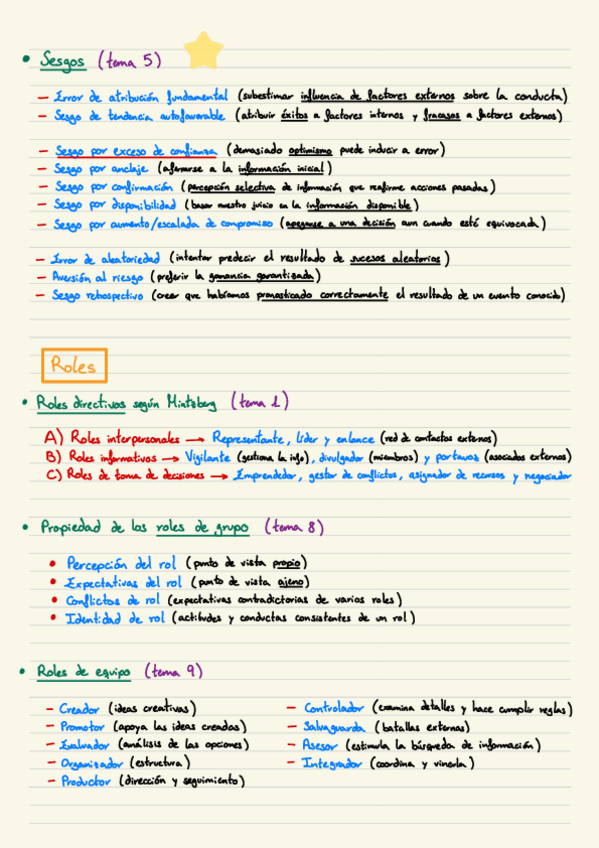 • Sesgos (tema 5)
- Error de atribución fundamental (subestimar influencia de factores externos sobre la conducta)
- Sesgo de tendencia autofavorable (atribuir éxitos a factores internos y fracasos a factores externos)
- Sesgo por exceso de confianza (demasiado optimismo puede inducir a error)
- Sesgo por anclaje (aferrarse a la información inicial)
- Sesgo por confirmación (percepción selectiva de información que reafirme acciones pasadas)
- Sesgo por disponibilidad (basar nuestro juicio en la información disponible)
- Sesgo por aumento/escalada de compromiso (apegarse a una decisión aun cuando esté equivocada)
- Error de aleatoriedad (intentar predecir el resultado de sucesos aleatorios)
- Aversión al riesgo (preferir la ganancia garantizada)
- Sesgo retrospectivo (creer que habíamos pronosticado correctamente el resultado de un evento conocido)
Roles
• Roles directivos según Mintzberg (tema 1)
A) Roles interpersonales → Representante, líder y enlance (red de contactos externos)
B) Roles informativos → Vigilante (gestiona la info), divulgador (miembros) y portavos (asociados externos)
C) Roles de toma de decisiones → Emprendedor, gestor de conflictos, asignador de recursos y negociador
• Propiedad de los roles de grupo (tema 8)
• Percepción del rol (punto de vista propio)
• Expectativas del rol (punto de vista ajeno)
• Conflictos de rol (expectativas contradictorias de varios roles)
• Identidad de rol (actitudes y conductas consistentes de un rol)
• Roles de equipo (tema 9)
- Creador (ideas creativas)
- Promotor (apoya las ideas creadas)
- Evaluador (análisis de las opciones)
- Organizador (estructura)
- Productor (dirección y seguimiento)
- Controlador (examina detalles y hace cumplir reglas)
- Salvaguarda (batallas externas)
- Asesor (estimula la búsqueda de información)
- Integrador (coordina y vincula)